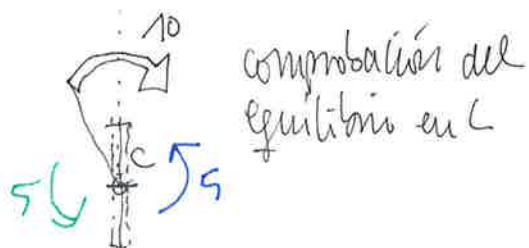 10
comprobación del
equilibrio en C
C
5
5